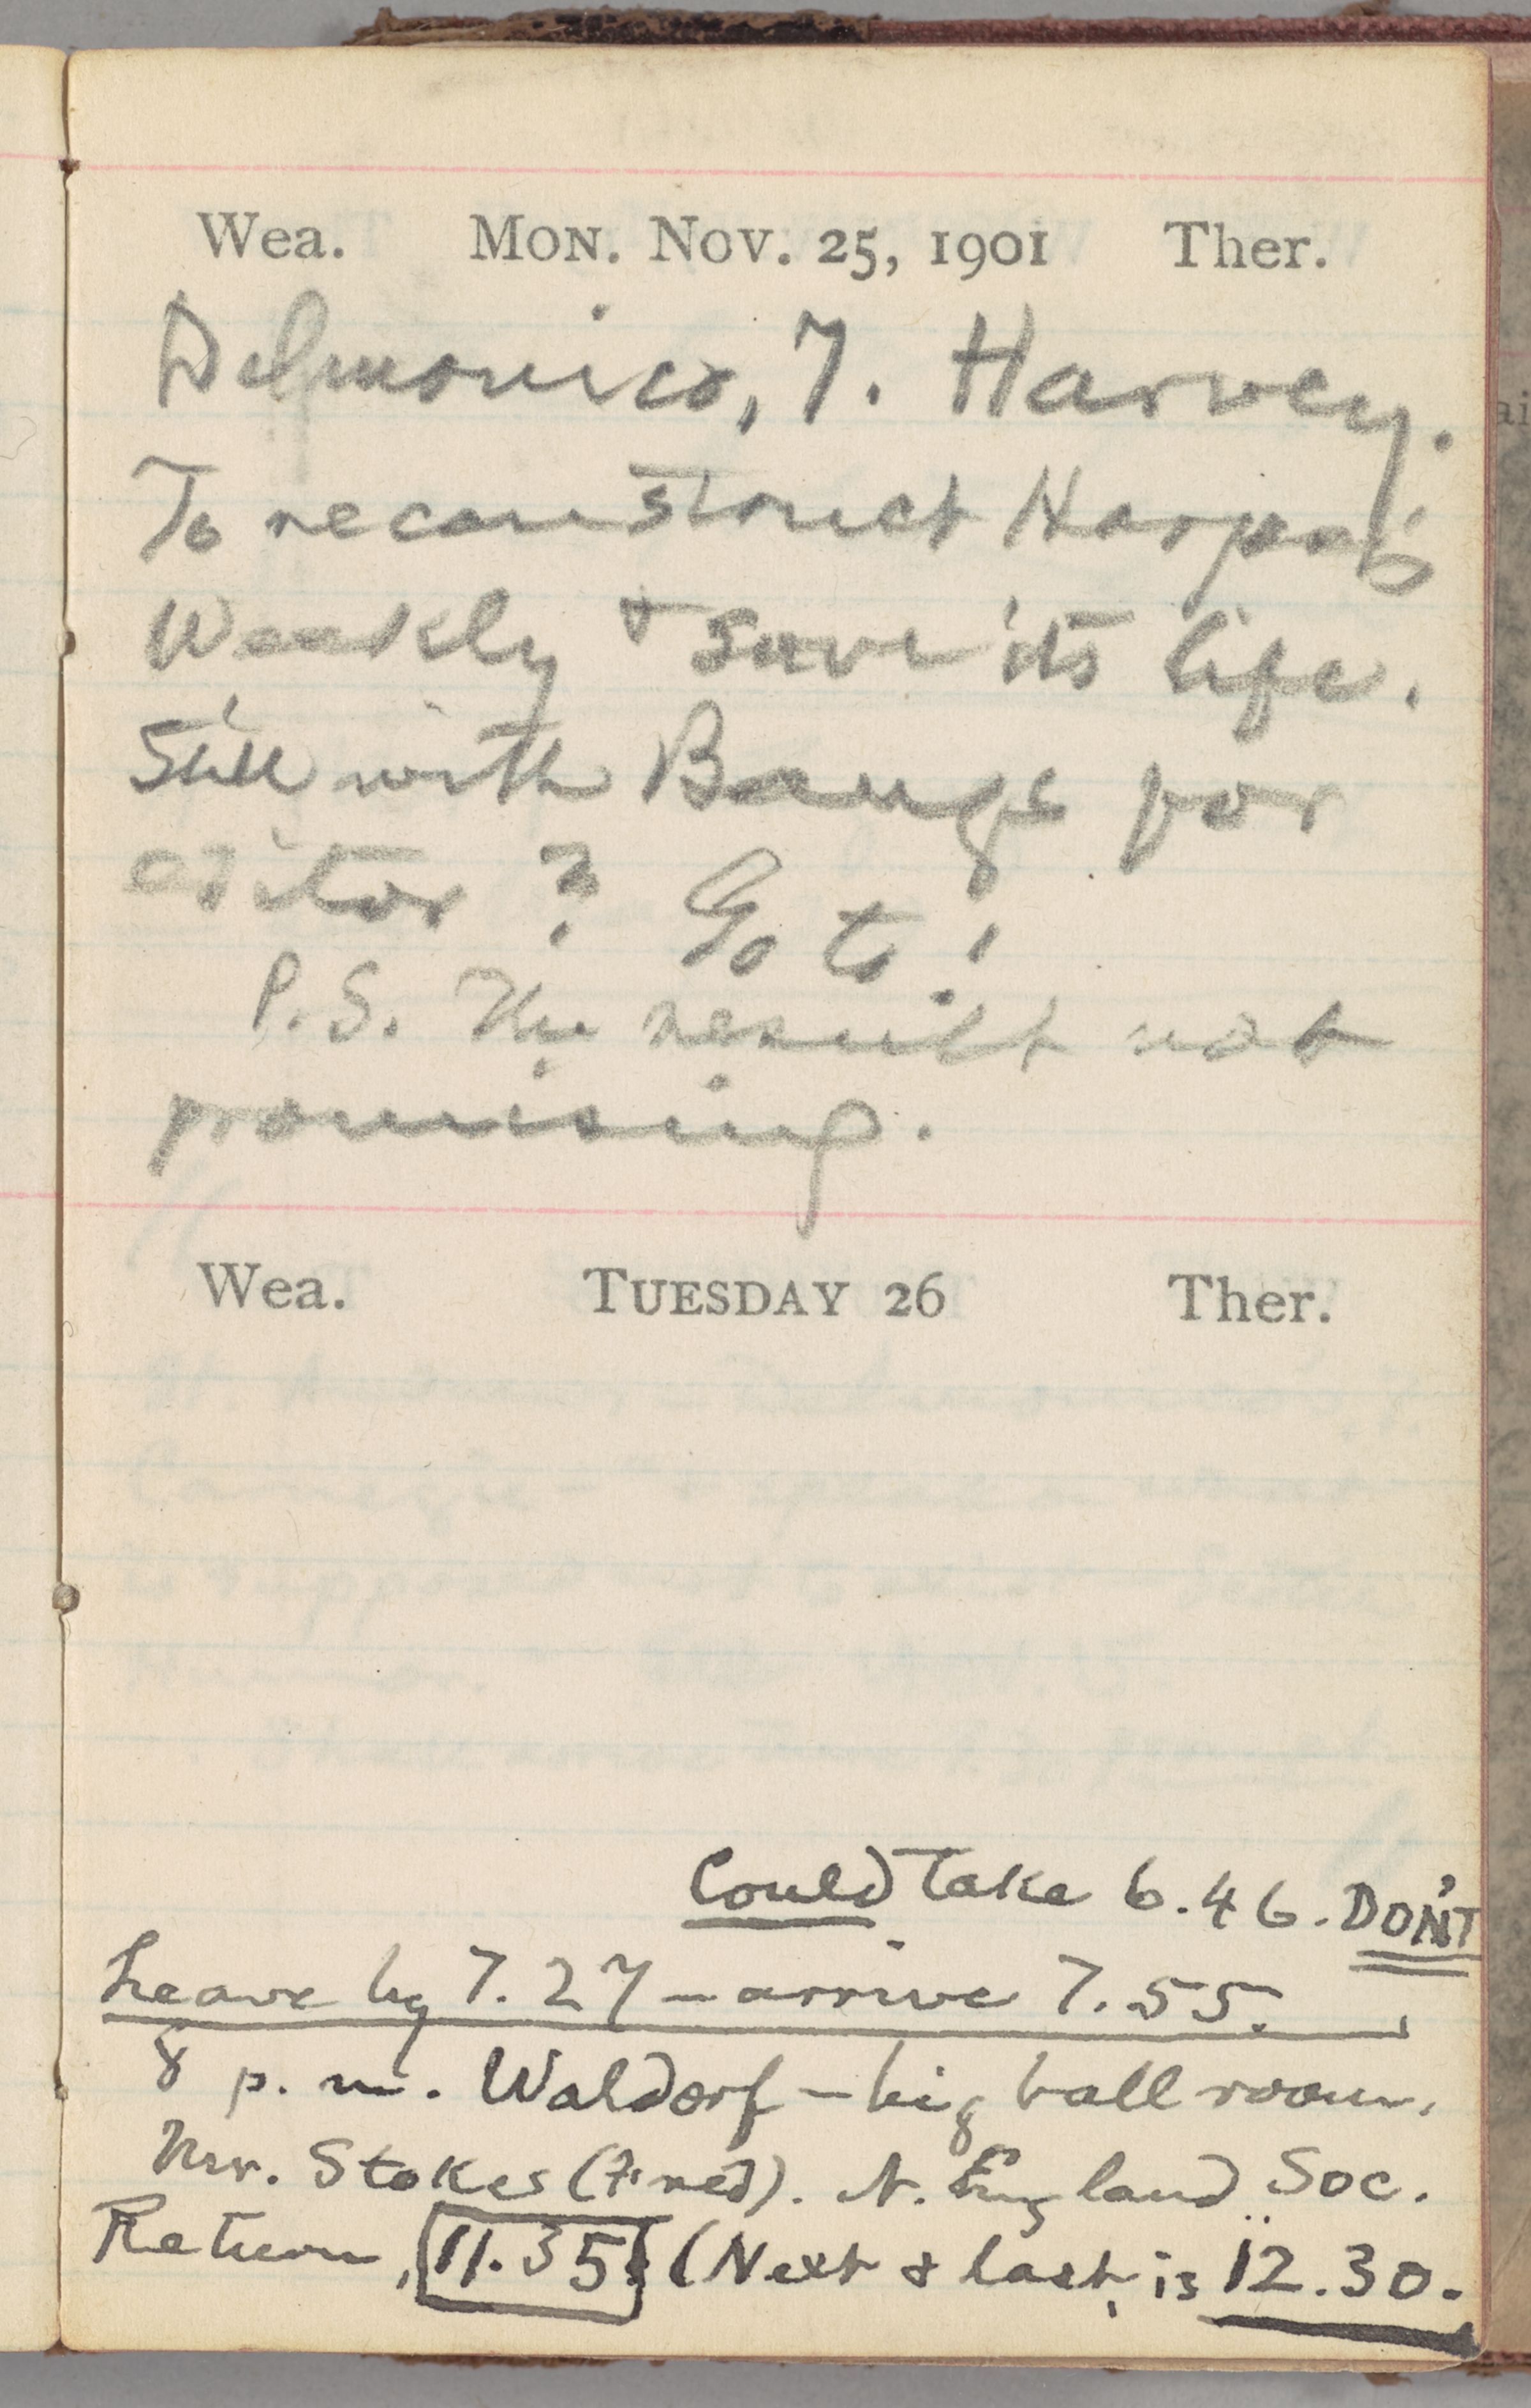 Wea. Mon. Nov. 25, 1901 Ther.
Delmonico, 7. Harvey.
To reconstruct Harper's
Weekly & save its life.
Still with Bangs for
editor? Go to!
P.S. The result not
promising.
Wea. Tuesday 26 Ther.
Could take 6.46. DON'T
Leave by 7.27 — arrive 7.55.
8 p.m. Waldorf — big ball room,
Mr. Stokes (Fred). N. England Soc.
Return, 11.35. (Next & last, is 12.30.